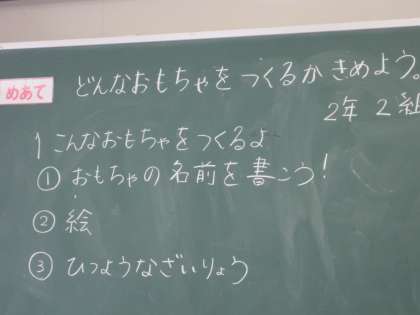 めあて
どんなおもちゃをつくるかきめよう。
2年 2組
1 こんなおもちゃをつくるよ
① おもちゃの名前を書こう!
② 絵
③ ひつようなざいりょう